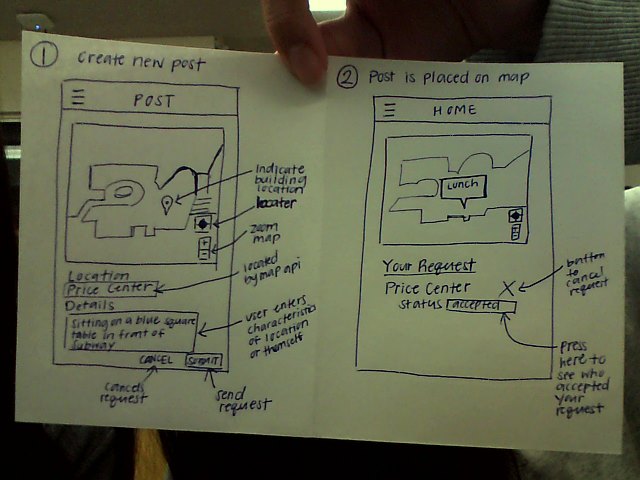 1 Create new post
POST
Indicate
building
location
locater
zoom
map
Location
Price Center
located
by map api
Details
Sitting on a blue square
table in front of
subway
user enters
characteristics
of location
or themself
CANCEL SUBMIT
cancels
request
send
request
2 Post is placed on map
HOME
LUNCH
Your Request
Price Center X
status accepted
button
to
cancel
request
press
here to
see who
accepted
your
request